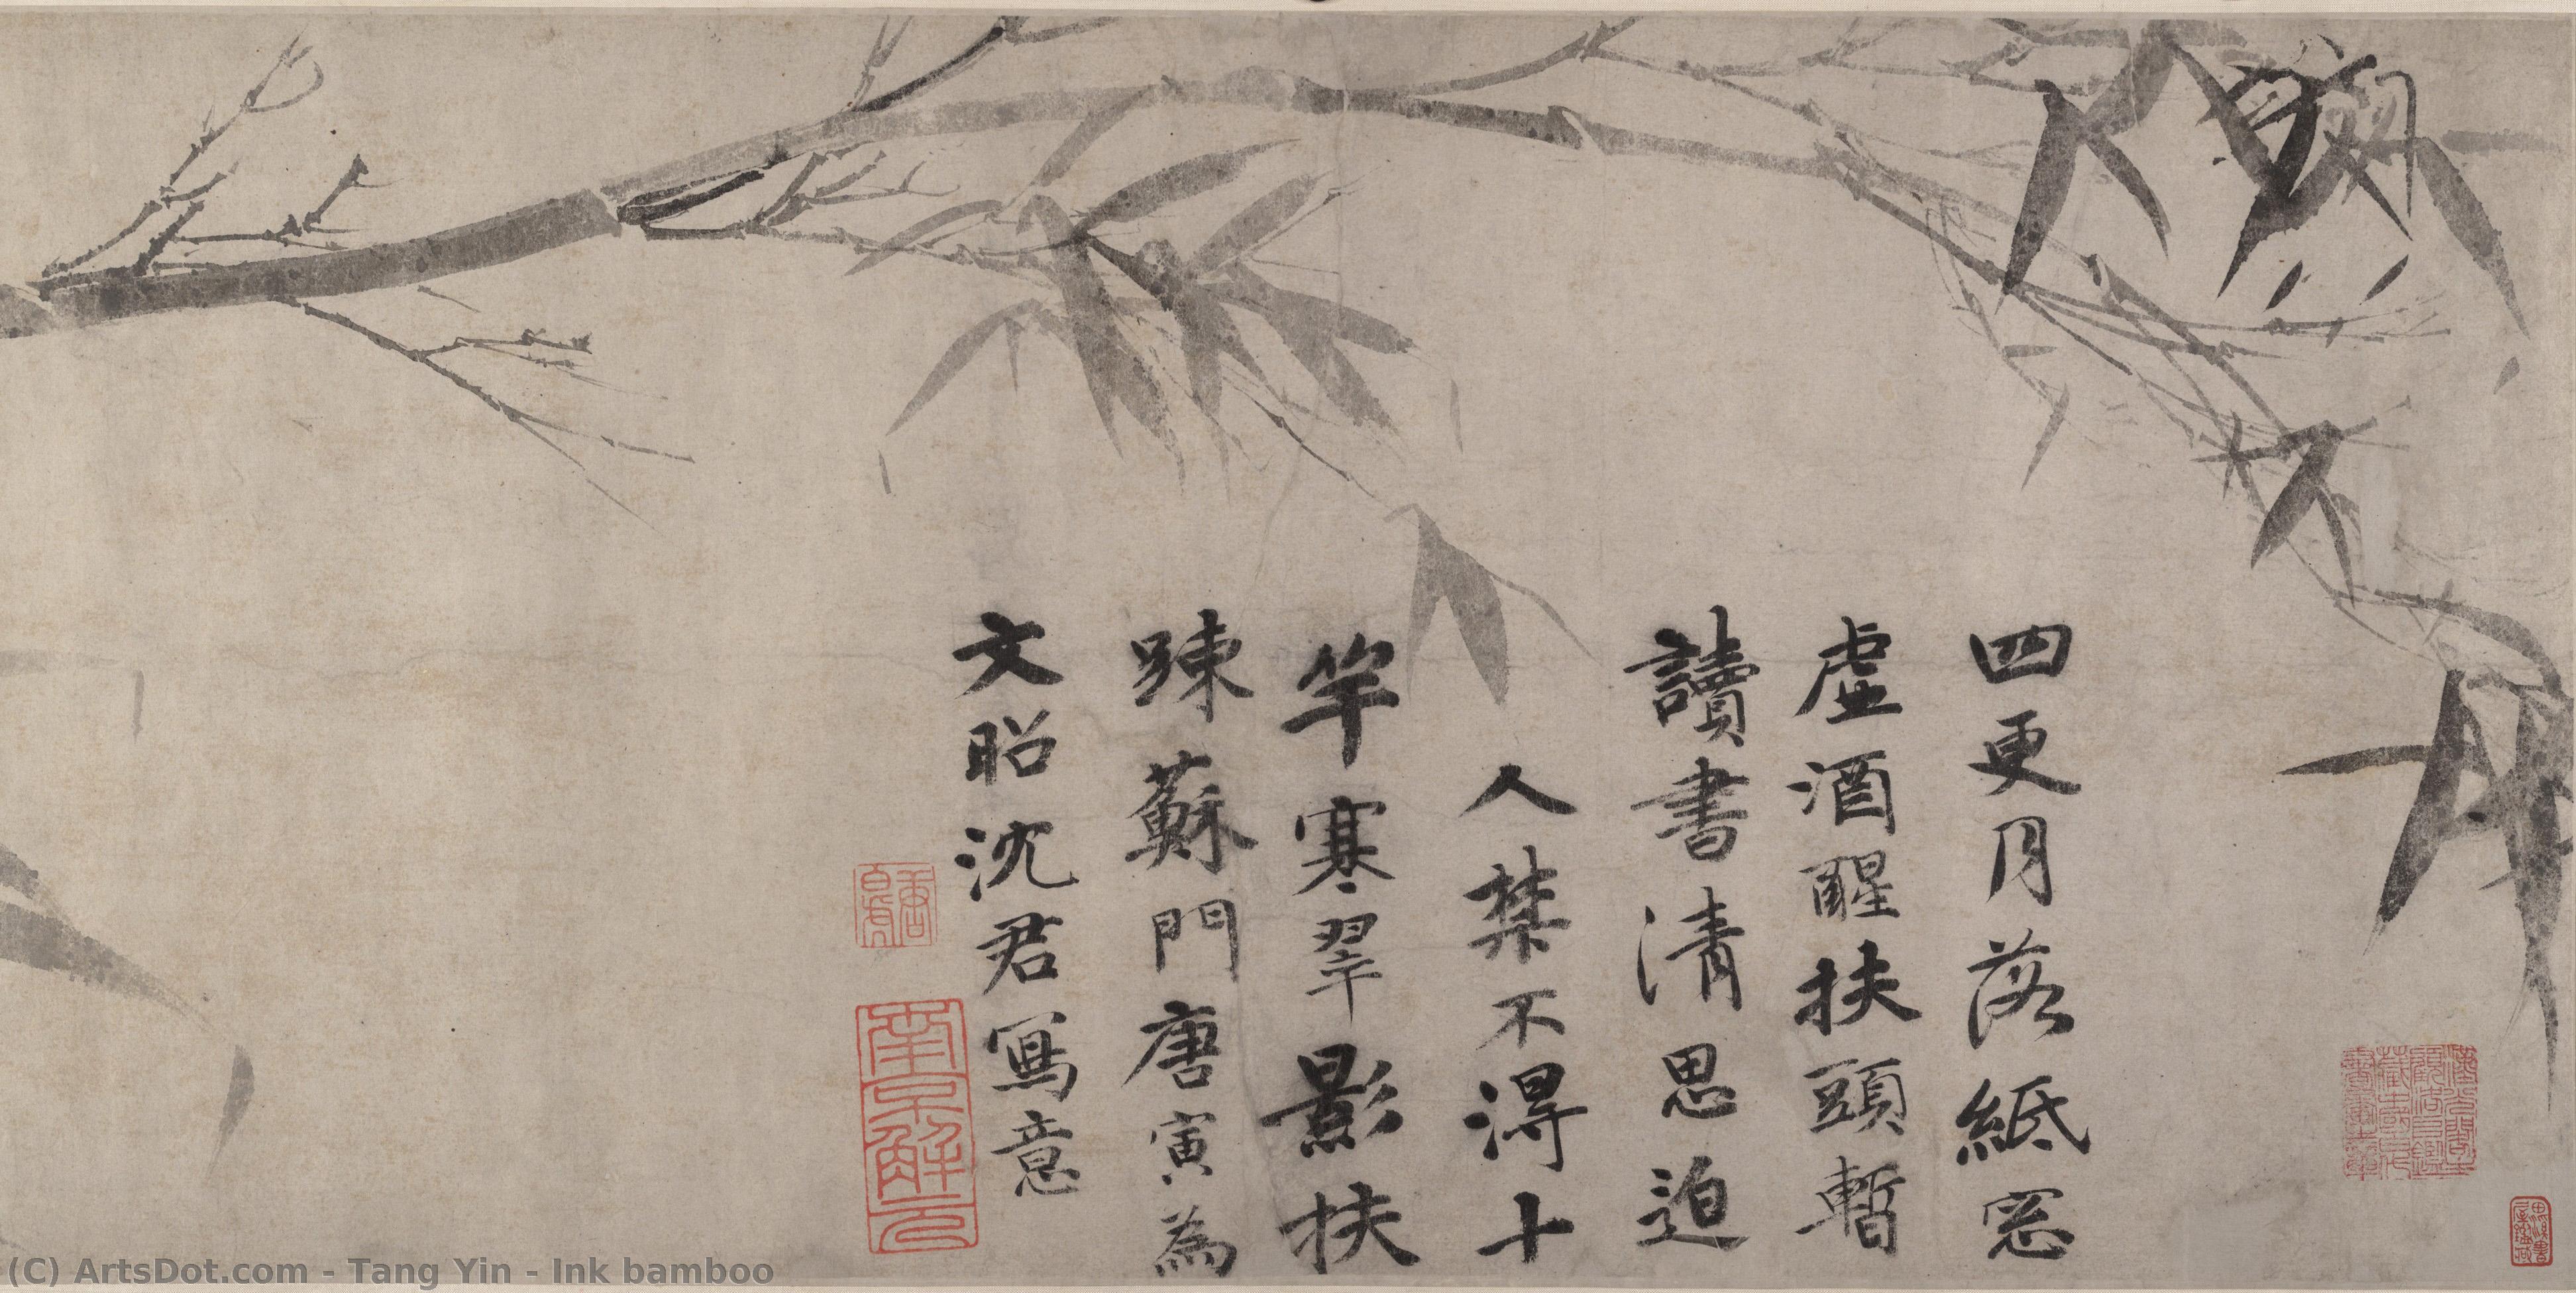 四更月落紙窓
虛酒醒扶頭暫
讀書清思迫
人禁不得十
竿寒翠影扶
踈蘇門唐寅為
文昭沈君寫意
南京解元
(C) ArtsDot.com - Tang Yin - Ink bamboo